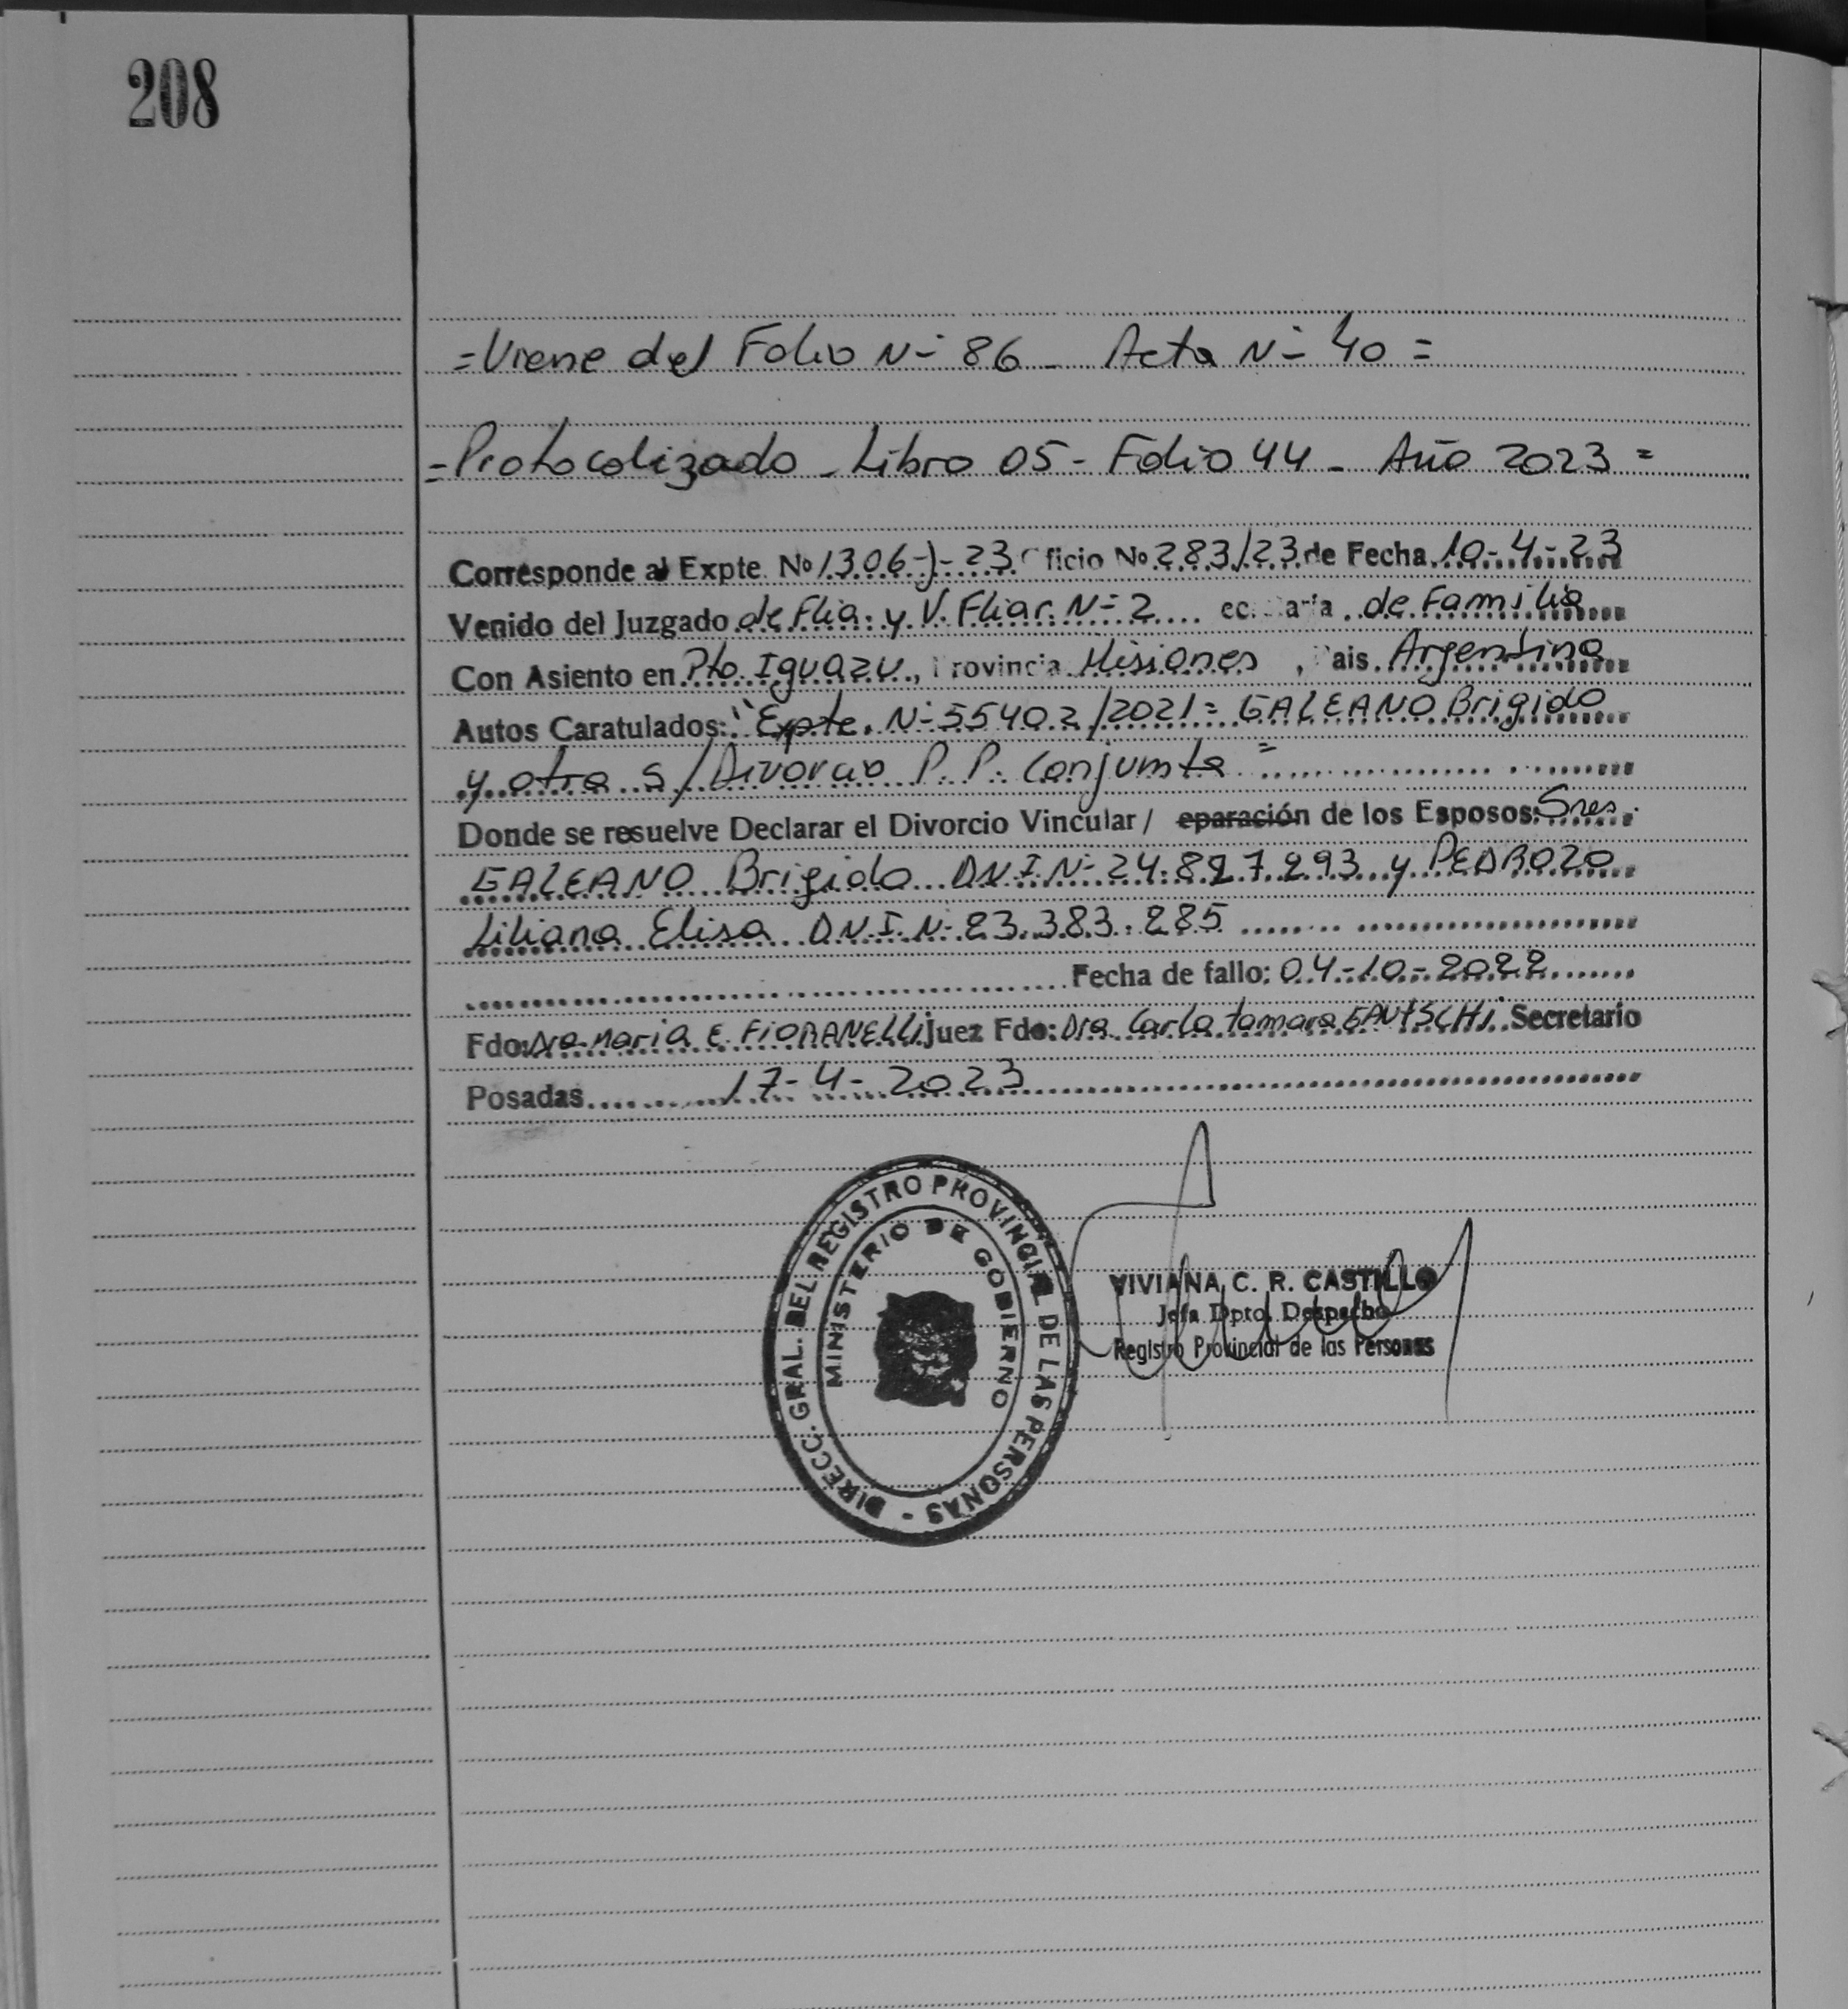 208
= Viene del Folio N- 86 - Acta N- 40 =
= Protocolizado - Libro 05 - Folio 44 - Año 2023 =
Corresponde al Expte. Nº 1306-J-23 ficio Nº 283/23 de Fecha 10-4-23
Venido del Juzgado de Flia. y V. Fliar. N-2 de Familia
Con Asiento en Pto Iguazu, Provincia Misiones, Pais Argentina
Autos Caratulados: "Expte. N- 55402/2021= GALEANO Brigido
y otra s/Divorcio P.P. Conjunta"
Donde se resuelve Declarar el Divorcio Vincular/ eparación de los Esposos: Sres.
GALEANO Brigido D.N.I. N- 24.827.293 y PEDROZO
Liliana Elisa D.N.I. N- 23.383.285
Fecha de fallo: 04-10-2022
Fdo: Dra Maria E. FIORANELLI Juez Fdo: Dra Carla tamara GAUTSCHi Secretario
Posadas 17-4-2023
DIRECC. GRAL. DEL REGISTRO PROVINCIAL DE LAS PERSONAS -
MINISTERIO DE GOBIERNO
VIVIANA C. R. CASTILLO
Jefa Dpto. Despacho
Registro Provincial de las Personas